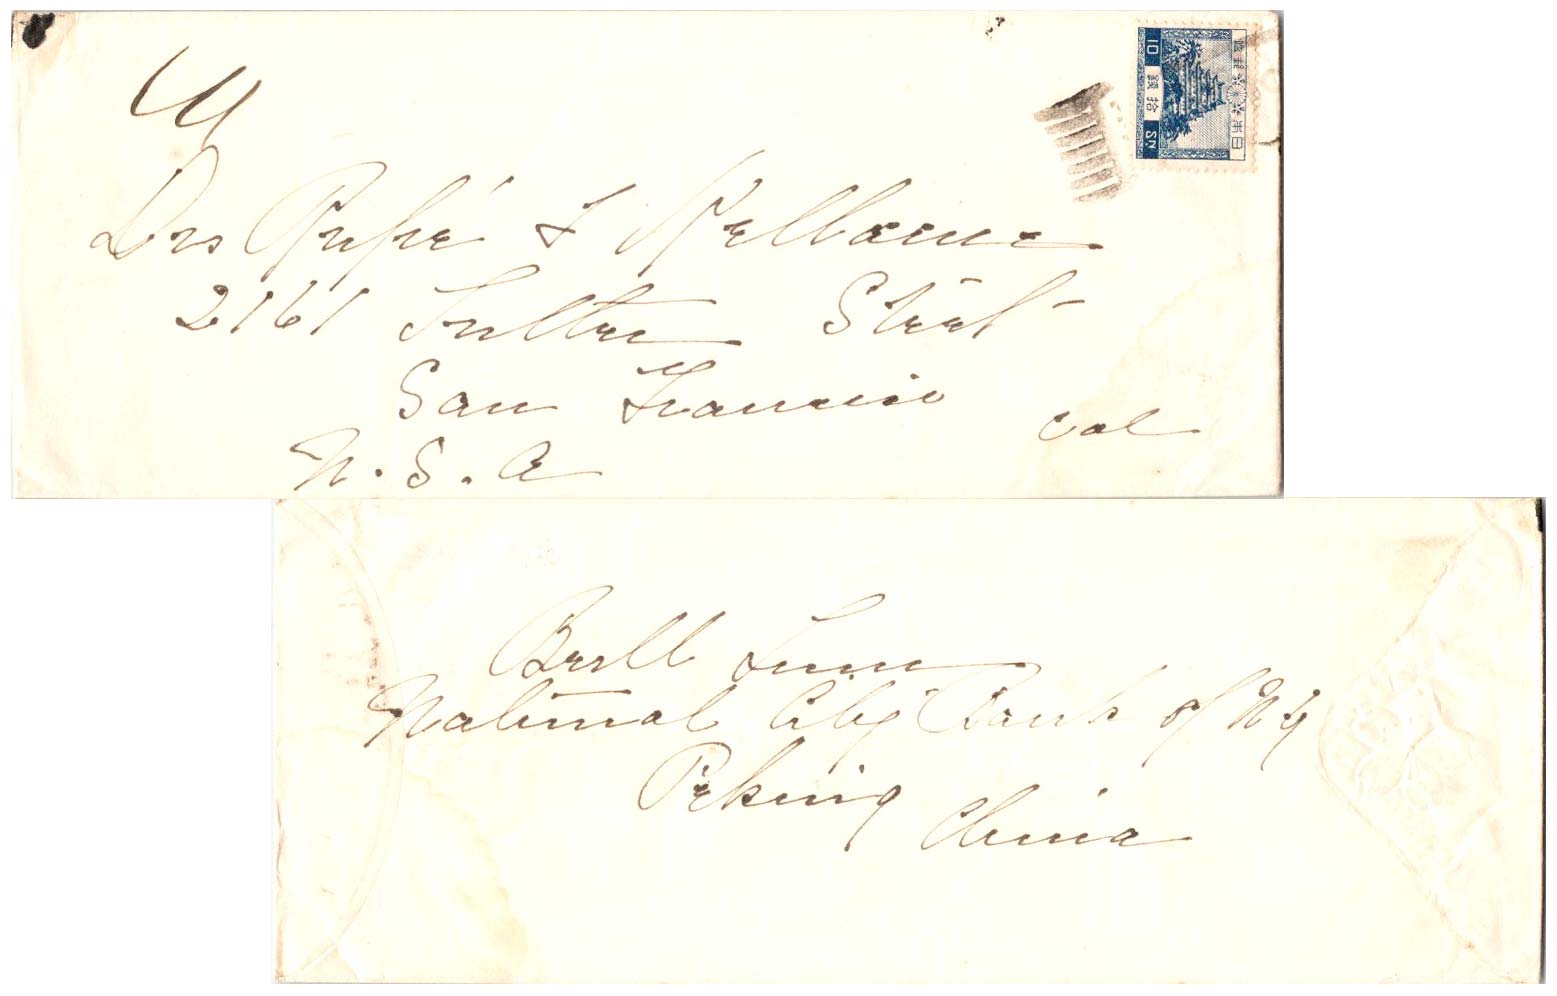 日本郵便
10 錢拾 SN.
Drs &
2161 Sutter Street
San Francisco
Cal
U.S.A
National City Bank of N Y
Peking
China